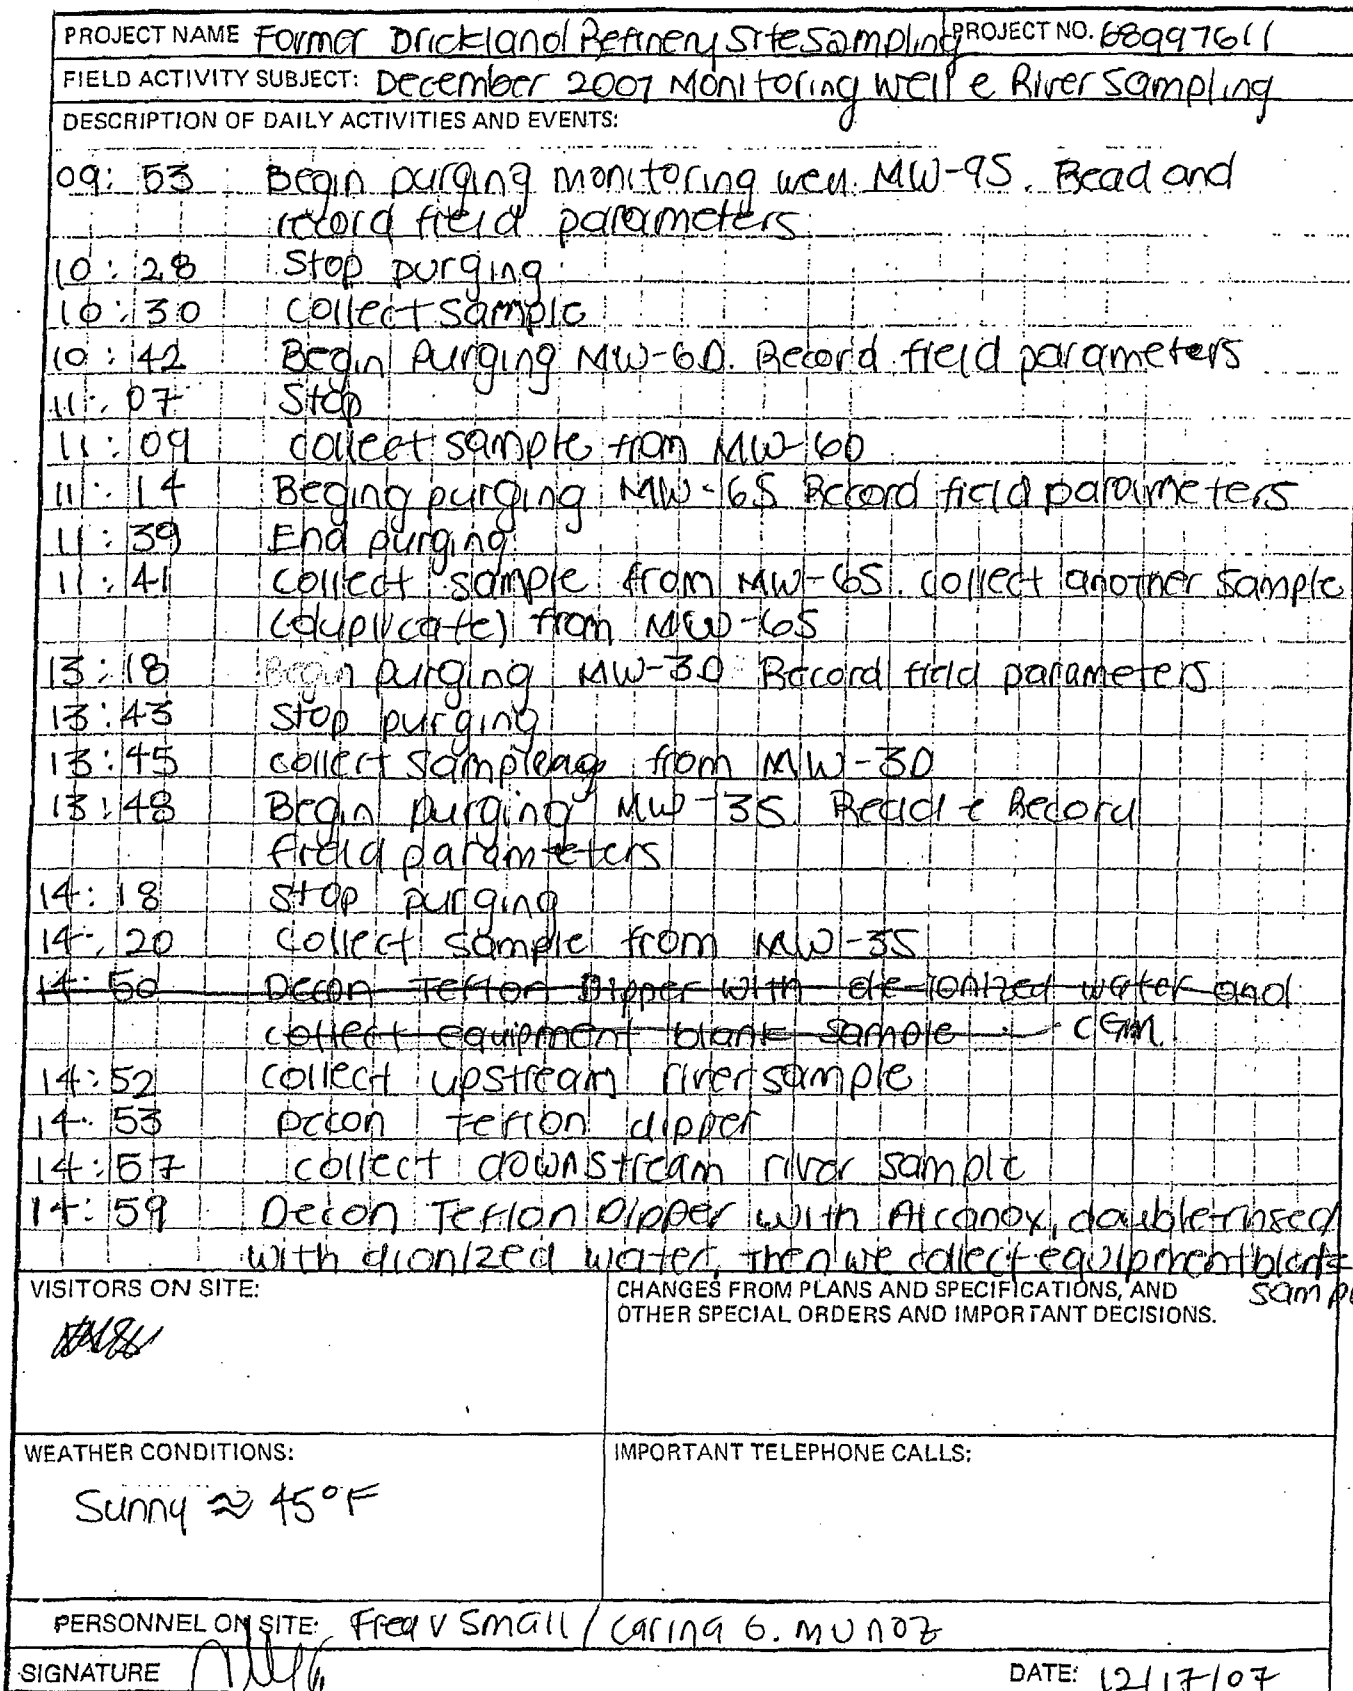 PROJECT NAME Former Drickland Refinery Site Sampling PROJECT NO. 68997611
FIELD ACTIVITY SUBJECT: December 2007 Monitoring well & River Sampling
DESCRIPTION OF DAILY ACTIVITIES AND EVENTS:
09:53 Begin purging monitoring well MW-9S. Read and
record field parameters
10:28 Stop purging
10:30 Collect sample
10:42 Begin Purging MW-6D. Record field parameters
11:07 Stop
11:09 collect sample from MW-6D
11:14 Beging purging MW-6S Record field parameters
11:39 End purging
11:41 collect sample from MW-6S. collect another sample
(duplicate) from MW-6S
13:18 Begin purging MW-3D Record field parameters
13:43 Stop purging
13:45 collect sample from MW-3D
13:48 Begin purging MW-3S Read & Record
field parameters
14:18 Stop purging
14:20 Collect sample from MW-3S
14:50 Decon Teflon Dipper with de-ionized water and
collect equipment blank sample CGM
14:52 collect upstream river sample
14:53 Decon Teflon dipper
14:57 collect downstream river sample
14:59 Decon Teflon Dipper with Alconox, double-rinsed
with dionized water, then we collect equipment blank
VISITORS ON SITE:
CHANGES FROM PLANS AND SPECIFICATIONS, AND samp
OTHER SPECIAL ORDERS AND IMPORTANT DECISIONS.
WEATHER CONDITIONS:
IMPORTANT TELEPHONE CALLS:
Sunny ≈ 45°F
PERSONNEL ON SITE: Fred V Small / Carina G. Munoz
SIGNATURE DATE: 12/17/07